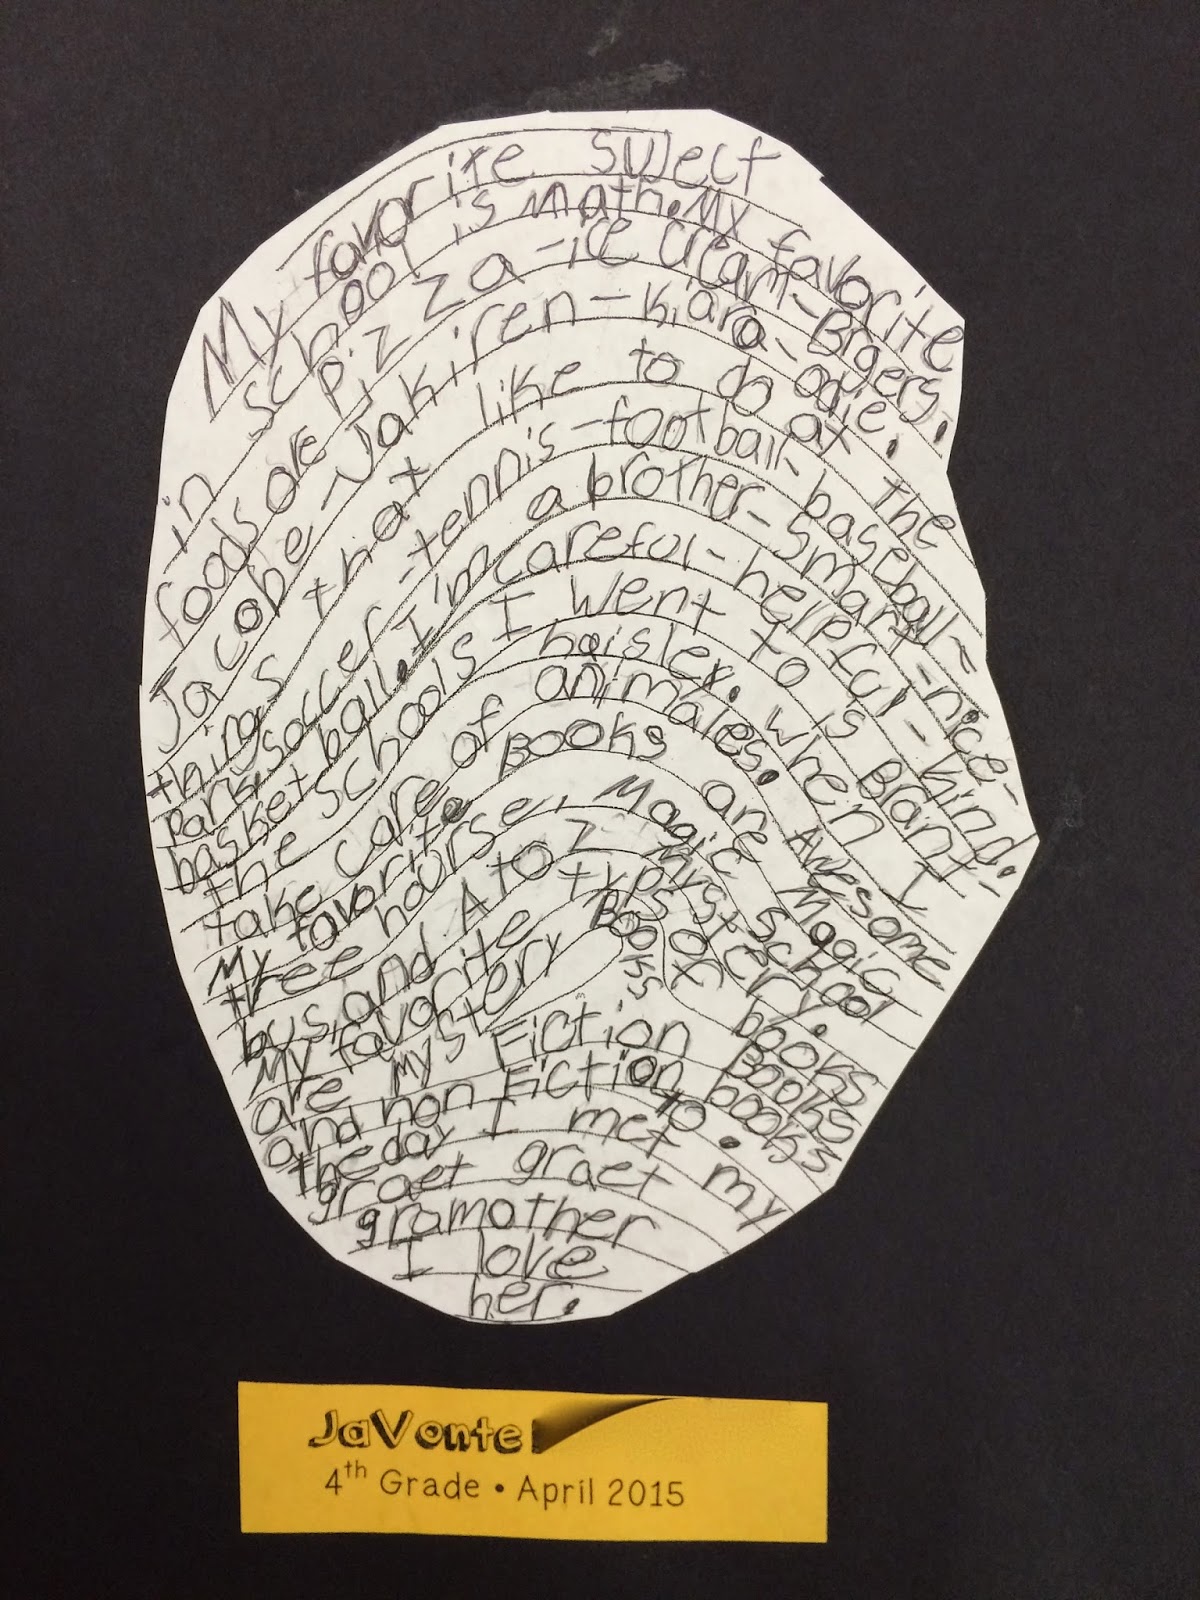 My favorite suject
in school is math. My favorite
foods are pizza-ice cream-Brgers.
Jacobe-Jakiren-kiara-odie.
things that like to do at the
Park, soccer-tennis-football-baseball-
basket ball. I'm a brother-smart-nice-
careful-helpful-kind.
the schools I went to is Brant-
haisley. when I
take care of animales.
My favorite Books are Awesome
tree hourse, Magic Magic School
bus, and A to Z Mystery.
My favorite typs of books
are mystery Books Books
and non Fiction Fiction books
the day I met my
graet graet
gramother
I love
her.
JaVonte
4th Grade • April 2015